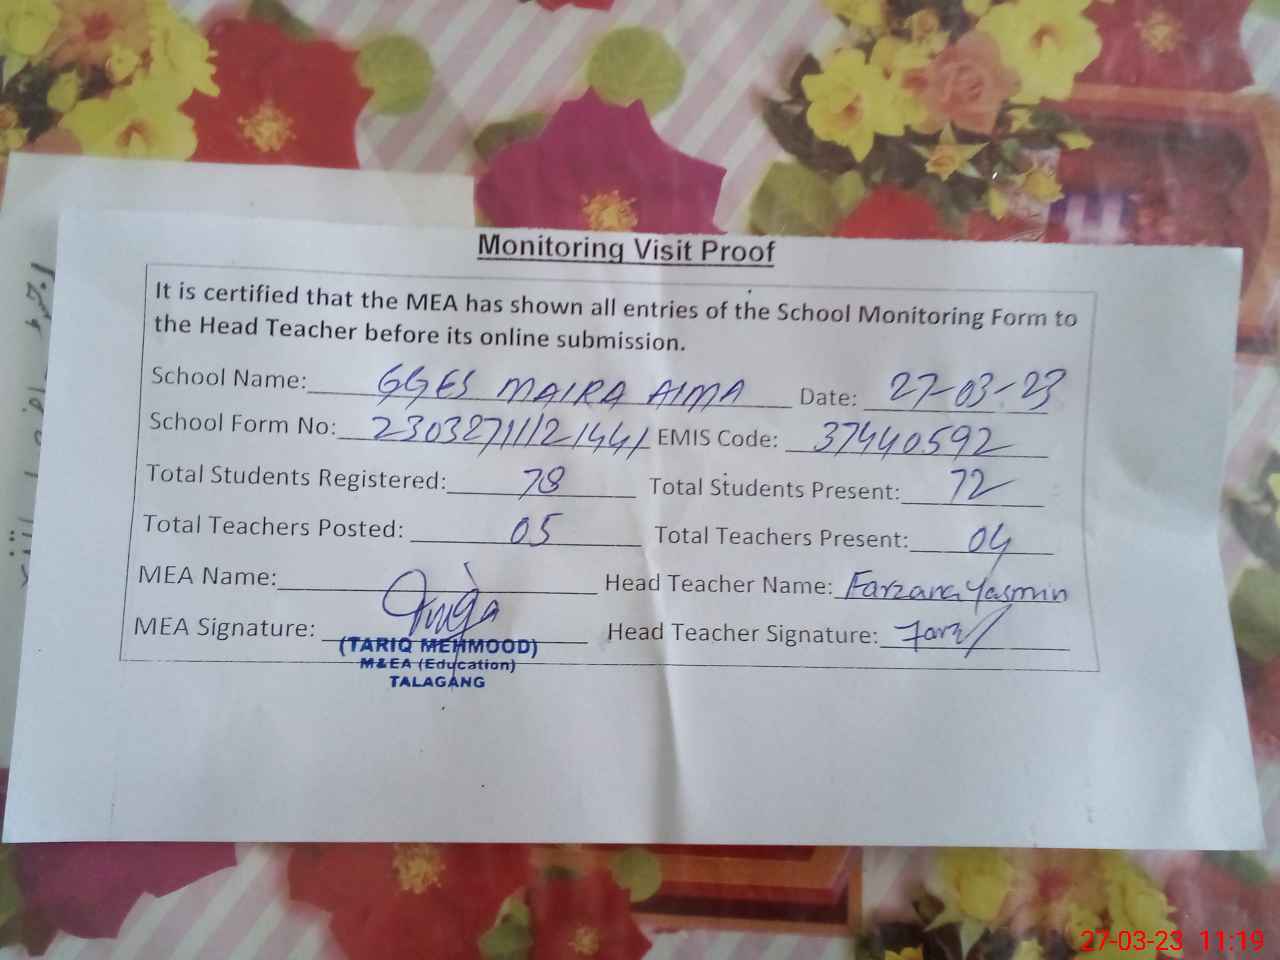 Monitoring Visit Proof
It is certified that the MEA has shown all entries of the School Monitoring Form to
the Head Teacher before its online submission.
School Name: GGES MAIRA AIMA Date: 27-03-23
School Form No: 23032711121441 EMIS Code: 37440592
Total Students Registered: 78 Total Students Present: 72
Total Teachers Posted: 05 Total Teachers Present: 04
MEA Name: Head Teacher Name: Farzana Yasmin
MEA Signature: Head Teacher Signature: Farz
(TARIQ MEHMOOD)
M&EA (Education)
TALAGANG
27-03-23 11:19